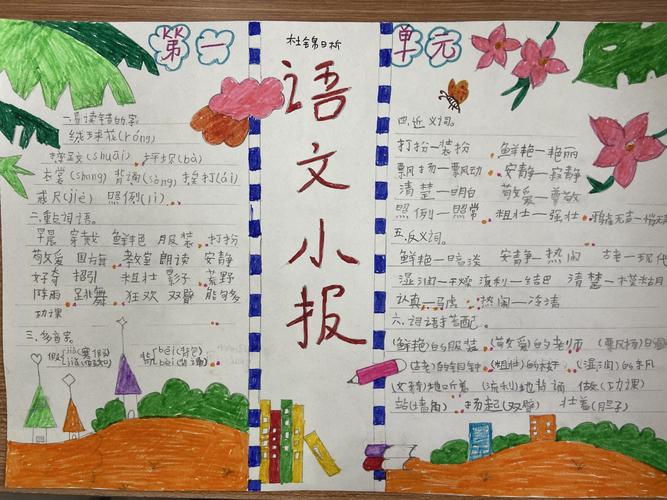 第一
一.易读错的字.
绒球花(róng)
摔跤(shuāi) 坪坝(bà)
衣裳(shang) 背诵(sòng) 挨打(ái)
戒尺(jiè) 照例(lì)
二.重点词语.
早晨 穿戴 鲜艳 服装 打扮
敬爱 国旗 教室 朗读 安静
好奇 招引 粗壮 影子 荒野
阵雨 跳舞 狂欢 双臂 能够多
功课
三.多音字.
假 jià(寒假) 背 bēi(背包)
语文小报
单元
四.近义词.
打扮—装扮 鲜艳—艳丽
飘扬—飘动 安静—寂静
清楚—明白 敬爱—尊敬
照例—照常 粗壮—强壮
五.反义词.
鲜艳—暗淡 安静—热闹 古老—现代
湿润—干燥 流利—结巴 清楚—模糊
认真—马虎 热闹—冷清
六.词语搭配.
(鲜艳)的服装 (敬爱)的老师
(古老)的铜钟 (粗壮)的枝干 (湿润)的
(安静)地听着 (流利)地背诵 (做)功课
站(墙角) 扬起(双臂)